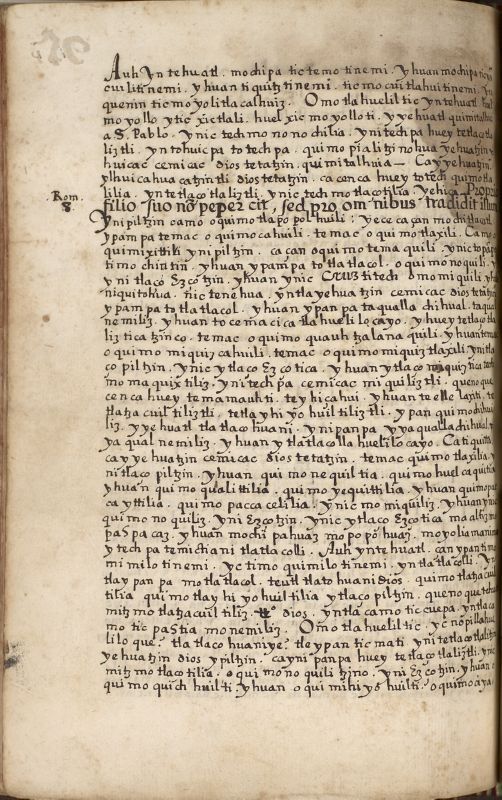 Auh yn tehuatl. mochipa tic temo tinemi. yhuan mochipa tic
cuilitinemi. yhuan tiquitztinemi. tic mo cuitlahui tinemi.
quenin tic mo yolitlacalhuiz. O mo tlahueliltic yn tehuatl
mo yollo ytic xictlali. huel xic mo yolloti. yyehuatl quimitalhui
a S. Pablo. ynic tech mo nono chilia. yni techpa huey tetlaço tla
liztli. yntohuicpa to techpa. quimo pialitzinohua yehuatzin
huicac cemicac dios tetatzin. quimitalhuia— Ca yyehuatzin
ylhuicahuacatzintli dios tetatzin. ca cenca huey totech quimo tla
lilia. yn tetlaçotlaliztli. ynic tech mo tlaçotilia yehica. Propri
Rom. 8
filio suo nõ pepercit, sed pro omnibus tradidit illum
Yni piltzin oamo oquimo tlapopolhuili. yece ça çan mochi
ypampa temac oquimocahuili. temac oquimo tlaxili. Camo
quimixittili ynipiltzin. ca çan oquimo temaquili. ynic topam
timo chintin. yhuan ypampa to tlatlacol. oquimo noquili.
yni tlaço Ezçotzin. yhuan ynic Cruztitech omomiquili
niquitohua. nic tenehua. yntla yehuatzin cemicac dios tetatzin
ypampa to tlatlacol. yhuan ypanpa taqualla chihual.
nemiliz. yhuan to cemacica tlahuelilocayo. yhuey tetlaço tla
liztica tzinco. temac oquimo quauhtzalanaquili. yhuan temac
oquimo miquizcahuili. temac oquimo miquiztlaxili. yni tla
ço piltzin. ynic ytlaço Ezçotica. yhuan ytlaço miquiztica
mo maquixtiliz. yni techpa cemicac miquiliztli. queno que
cenca huey temamauhti. teyhiçahui. yhuan te elle laxti. te
tlatzacuiltiliztli. tetlayhiyohuiltiliztli. ypan quimo chihui
liz. yyehuatl tlatlacohuani. yni panpa yyaqualla chihual.
yaqual nemiliz. yhuan ytlatlacolla huelilocayo. Ca ti quitta
ca yyehuatzin cemicac dios tetatzin. temac quimo tlaxilia.
ni tlaço piltzin. yhuan quimo nequiltia. quimo huelcaquitia
yhuan quimo qualittilia. quimo yequittilia. yhuan quimopac
cayttilia. quimo paccacelilia. ynic mo miquiliz. yhuan ynic
quimo noquiliz. yni Ezçotzin. ynic ytlaço Ezçotica
paspacaz. yhuan mochi pahuaz mo popohuaz. mo yolia
ytech pa temictiani tlatlacolli. Auh yn tehuatl. can ypan timo
mimilo tinemi. yc timo quimilo tinemi. yntlatlacolli.
tlaypan pa mo tlatlacol. teutl tlatohuani dios. quimo tlatzacuil
tilia quimo tlayhiyohuiltilia. ytlaço piltzin. queno que
mitzmo tlatzacuiltiliz dios. yntlacamo tic cuepa. yntlaca
mo tic pastia monemiliz. O mo tlahueliltic. yc nopillahue
lilo que? tlatlacohuaniye? tleypan tic mati yni tetlaçotlaliztzin
yehuatzin dios ypiltzin. ca yni panpa huey tetlaçotlaliztli. ynic
mitzmo tlaçotilia. oquimo noquili tzino. yni Ezçotzin. yhuan
quimo quichhuilti yhuan oquimihiyohuilti. oquimociya